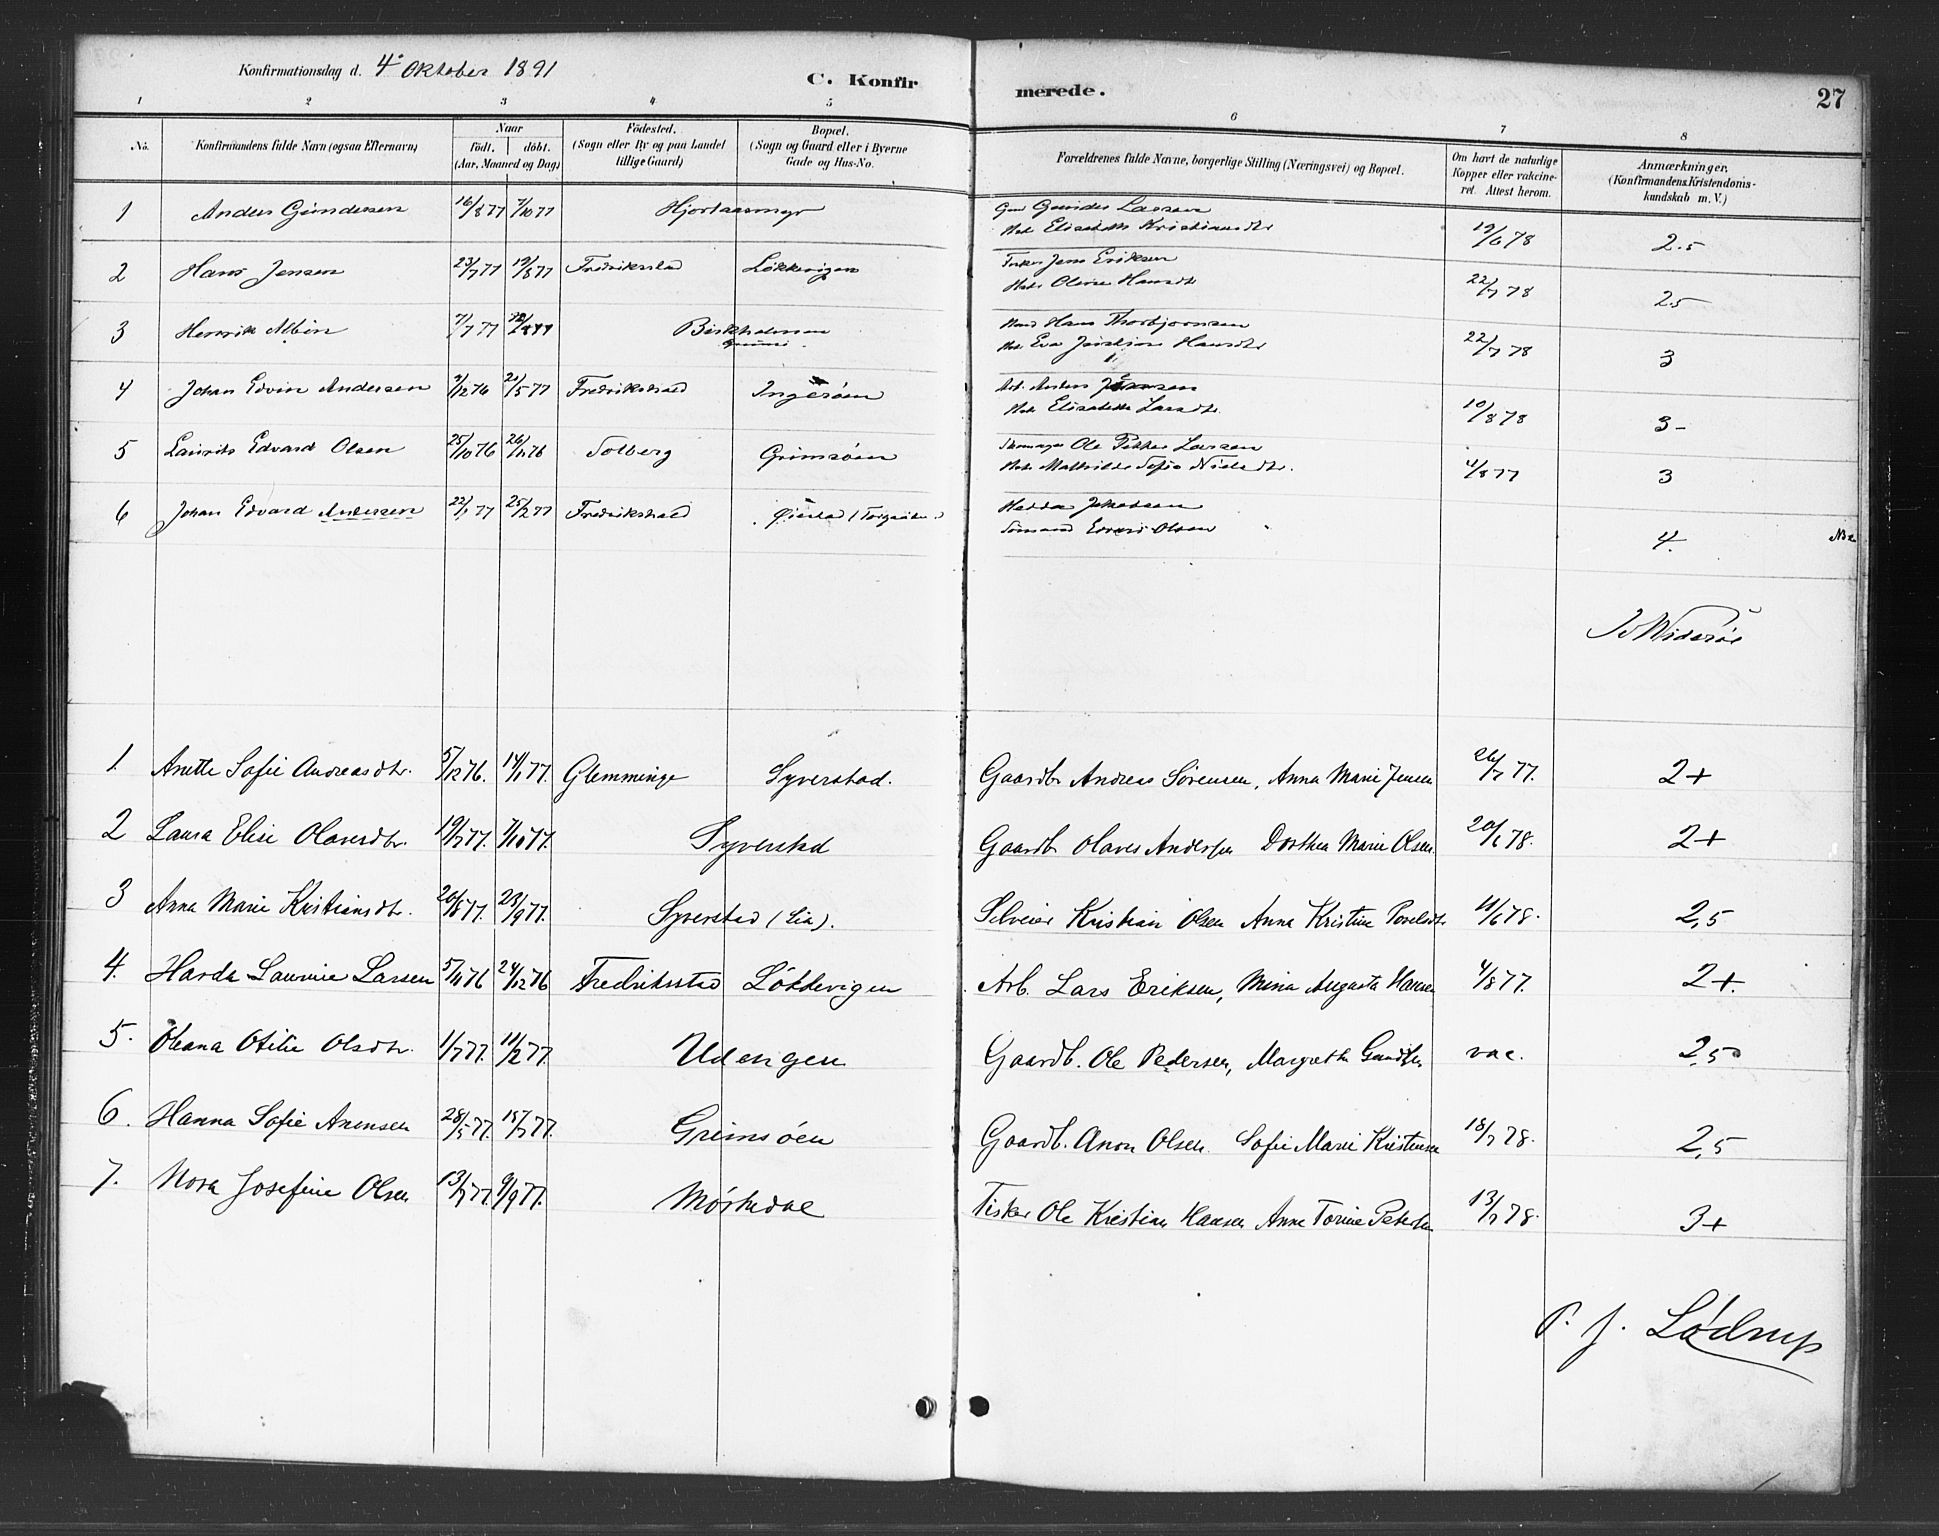 Konfirmationsdag d. 4de Oktober 1891 C. Konfirmerede. 27
1 2 3 4 5 6 7 8
No. Konfirmandens fulde Navn (ogsaa Efternavn) Naar födt. döbt. (Aar, Maaned og Dag) Födested. (Sogn eller By og paa Landet tillige Gaard) Bopæl. (Sogn og Gaard eller i Byerne Gade og Hus-No. Forældrenes fulde Navne, borgerlige Stilling (Næringsvei) og Bopæl. Om havt de naturlige Kopper eller vakcineret. Attest herom. Anmærkninger. (Konfirmandens Kristendomskundskab m. V.)
1 Anders Gundersen 16/8 77 7/10 77 Hjortaasmyr Gunder Larsen
Elisabeth Kristiansdtr 19/6 78 2.5
2 Hans Jensen 23/7 77 19/8 77 Fredriksstad Løkkevigen Fisker Jens Eriksen
Oline Hansdtr 22/7 78 2.5
3 Henrik Albin 7/7 77 12/8 77 Birkholmen Hans Thorbjørnsen
Eva Hansdtr 22/7 78 3
4 Johan Edvin Andersen 9/12 76 21/5 77 Fredrikshald Ingerøen Arb. Anders
Elisabeth Larsdtr. 10/8 78 3-
5 Laurits Edvard Olsen 25/10 76 26/11 76 Solberg Grimsøen Ole Petter Larsen
Mathilde Sofie Nielsdtr. 4/8 77 3
6 Johan Edvard Andersen 22/1 77 25/2 77 Fredrikshald Hedda Jakobsen
Sømand Olsen 4. NB
Widerøe
1. Anette Sofie Andreasdtr. 5/12 76. 14/1 77. Glemminge Syverstad. Gaardbr Andreas Sørensen, Anna Marie Jensen 26/7 77. 2+
2 Laura Elise Olavesdtr. 19/7 77. 7/10 77. Syverstad Gaardb Olaves Andersen Dorthea Marie Olsen. 20/6 78. 2+
3 Anna Marie Kristiansdtr. 20/8 77. 23/9 77. Syverstad (Lia). Selveier Kristian Olsen Anna Kristine Povelsdtr 11/6 78. 2,5
4. Harda Laurine Larsen 5/11 76 24/12 76 Fredriksstad Løkkevigen Arb. Lars Eriksen, Mina Augusta Hansen 4/8 77. 2+.
5. Oleana Otilie Olsdtr. 1/7 77. 11/2 77. Udengen Gaardb. Ole Pedersen, Margrethe vac. 2,5
6. Hanna Sofie Anonsen 28/5 77. 15/7 77. Grimsøen Gaardb. Anon Olsen. Sofie Marie Kristensen 18/7 78. 2,5
7. Nora Josefine Olsen 13/7 77. 9/9 77. Mørkedal Fisker Ole Kristian Hansen Anne Torine Petersen 13/7 78. 3+
P. J. Lødrup